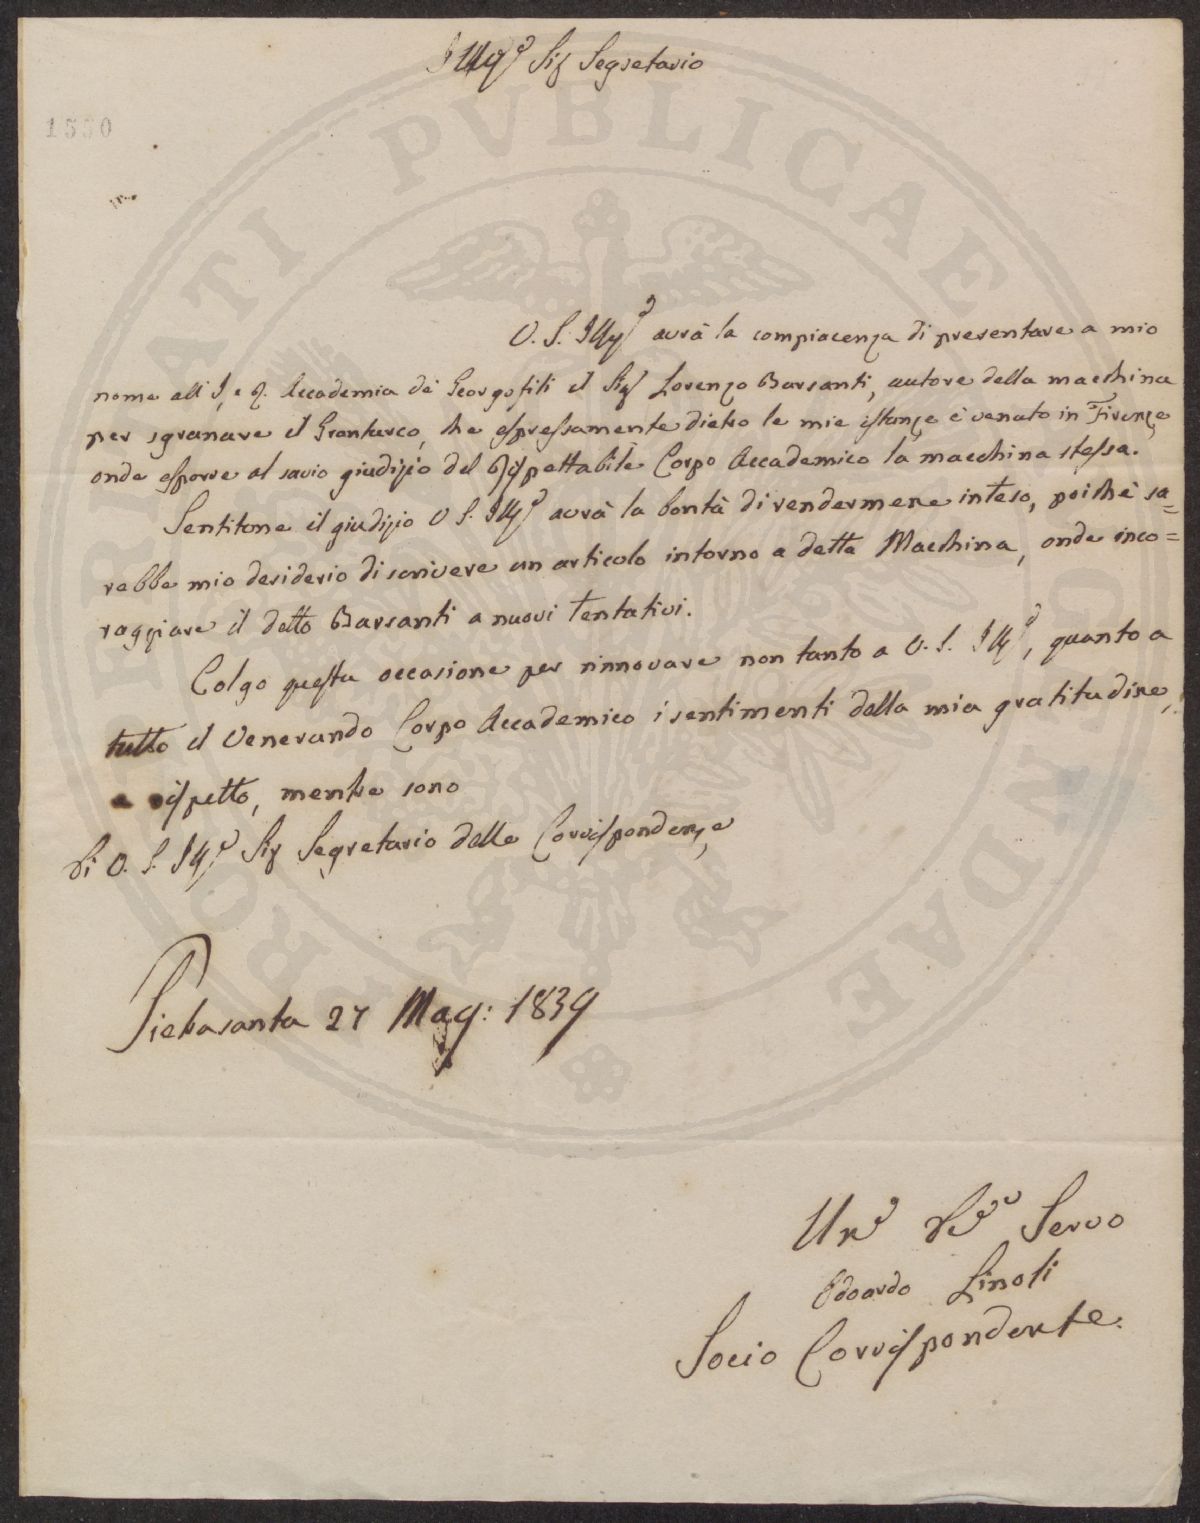 Illmo Sig Segretario
1550
V. S. Illma avrà la compiacenza di presentare a mio
nome all' I. e R. Accademia dè Georgofili il Sig Lorenzo Barsanti, autore della macchina
per sgranare il Granturco, che espressamente dietro le mie istanze è venuto in Firenze
onde esporre al savio giudizio del Rispettabile Corpo Accademico la macchina stessa.
Sentitone il giudizio V. S. Illma avrà la bontà di rendermene inteso, poichè sa=
rebbe mio desiderio di scrivere un articolo intorno a detta Macchina, onde inco=
raggiare il detto Barsanti a nuovi tentativi.
Colgo questa occasione per rinnovare non tanto a V. S. Illma, quanto a
tutto il Venerando Corpo Accademico i sentimenti della mia gratitudine,
e rispetto, mentre sono
Di V. S. Illma Sig Segretario delle Corrispondenze
Pietrasanta 27 Mag: 1839
Umo Devo Servo
Odoardo Linoli
Socio Corrispondente.
PUBLICAE